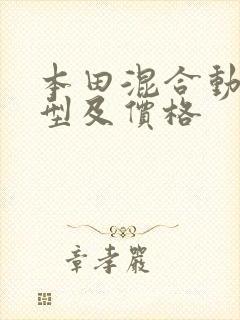 本田混合動
型及價格
章孝嚴